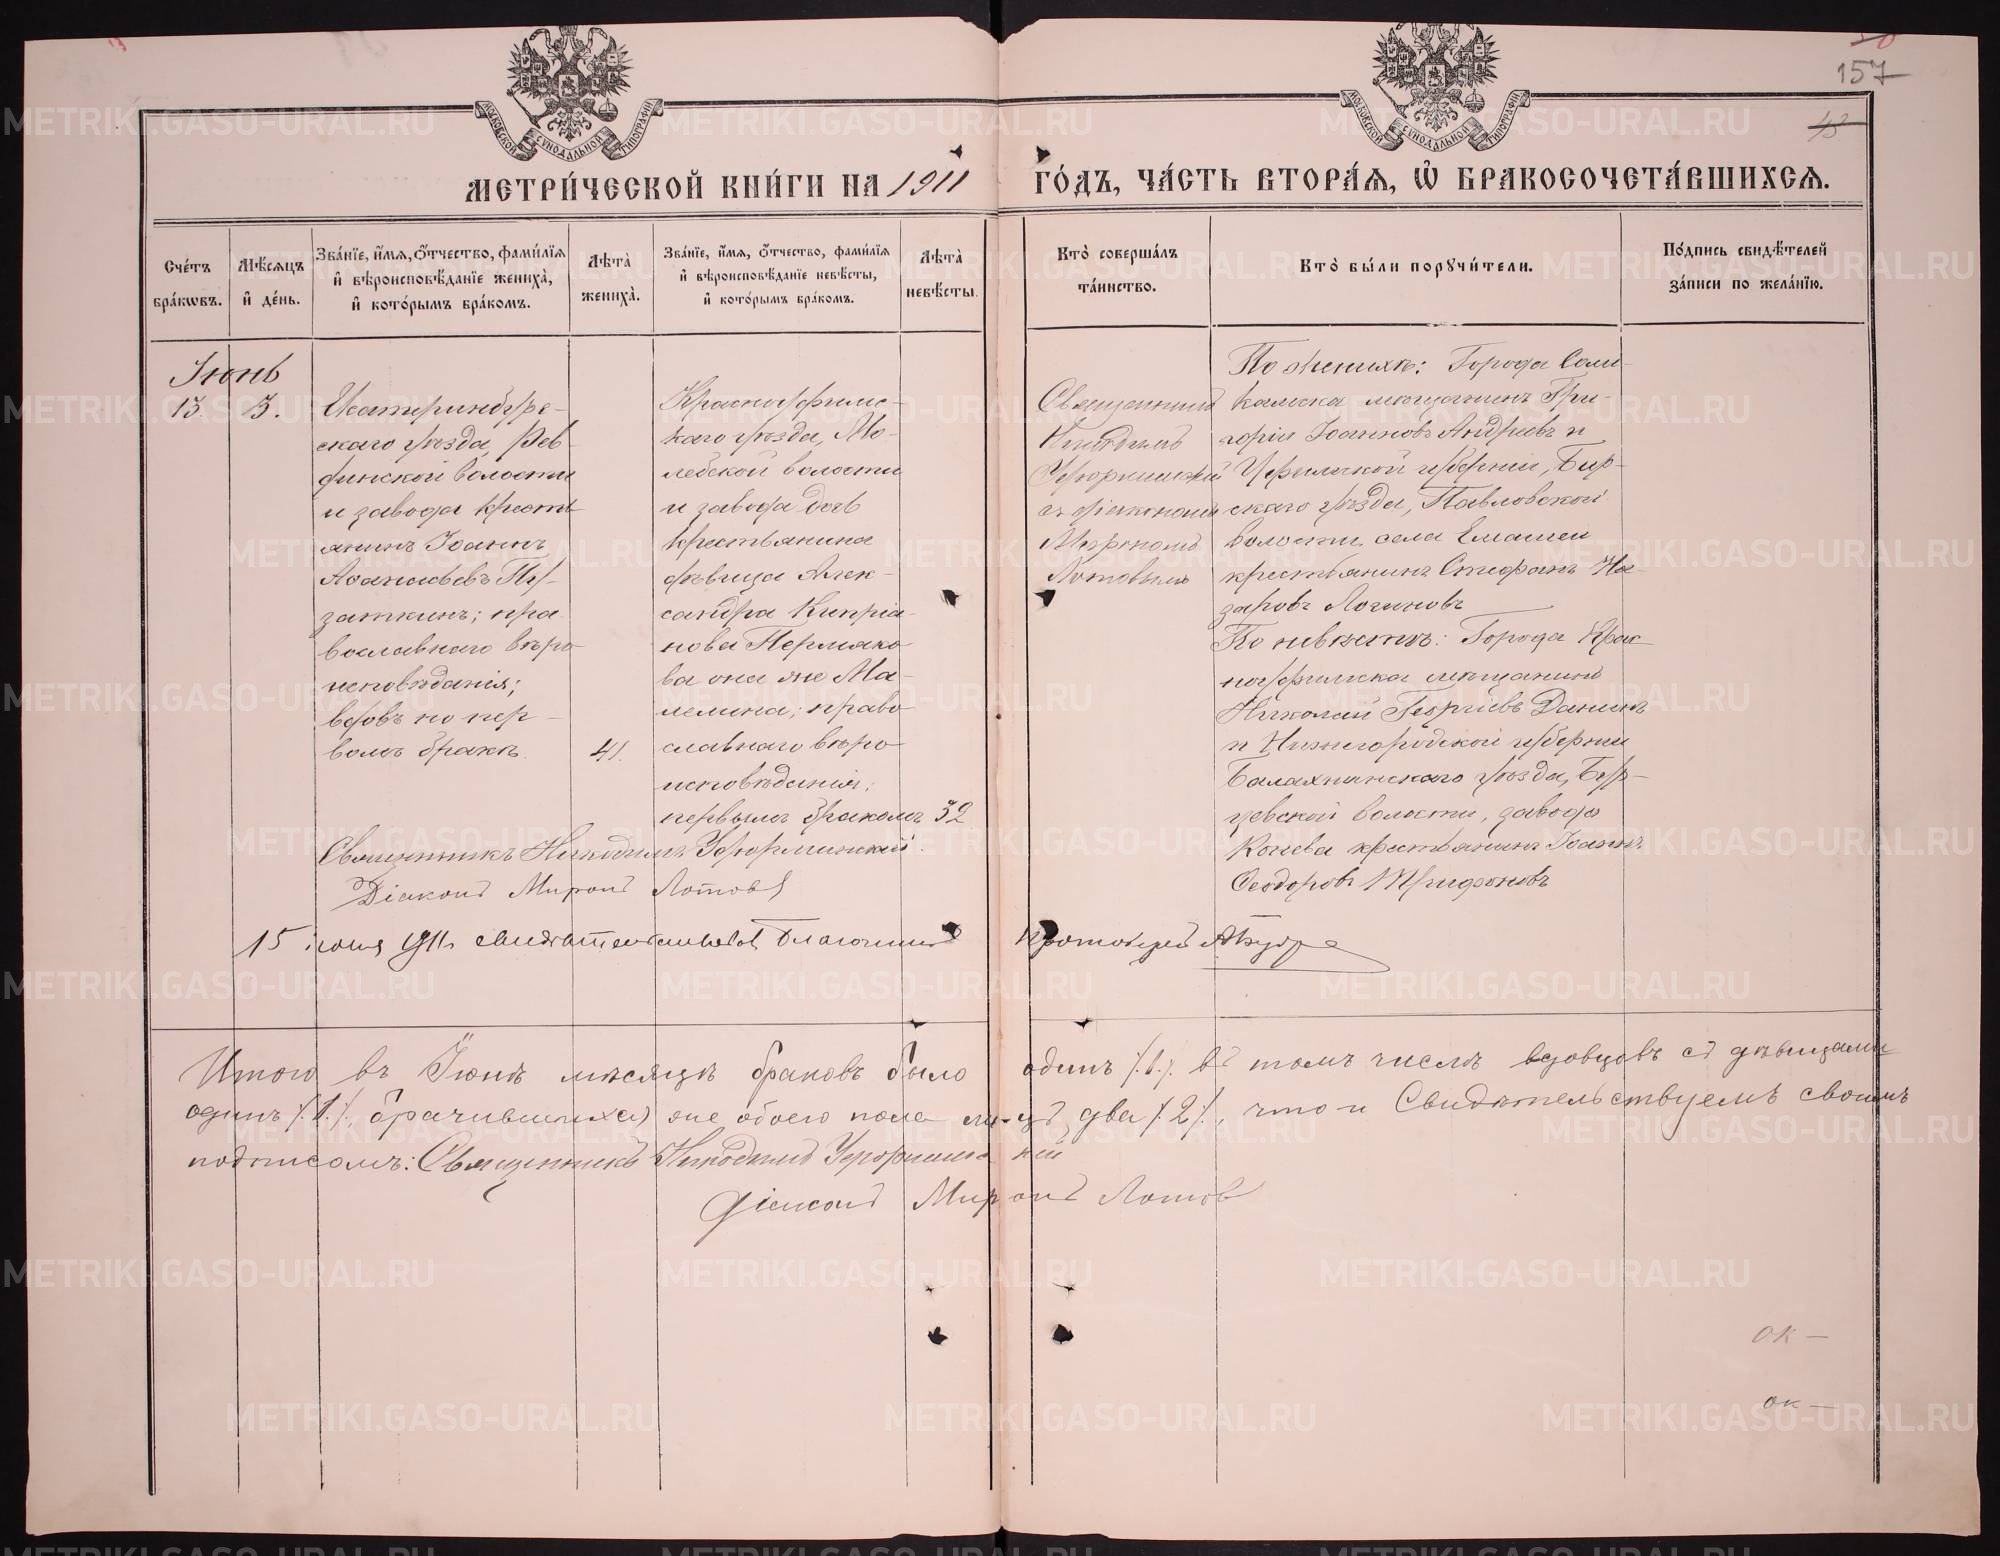 157
МЕТРИ́ЧЕСКОЙ КНИ́ГИ НА 1911 ГО́ДЪ, ЧА́СТЬ ВТОРА́Я, Ѡ БРАКОСОЧЕТА́ВШИХСЯ.
МОСКОВСКОЙ СѴНОДАЛЬНОЙ ТИПОГРАФІИ
МОСКОВСКОЙ СѴНОДАЛЬНОЙ ТИПОГРАФІИ
Сче́тъ бра́кѡвъ.
Мѣ́сяцъ и҆ де́нь.
Зва́нїе, и҆́мя, ѻ҆́тчество, фами́лїя и҆ вѣроисповѣ́данїе жениха̀, и҆ кото́рымъ бра́комъ.
Лѣ́та̀ жениха̀.
Зва́нїе, и҆́мя, ѻ҆́тчество, фами́лїя и҆ вѣроисповѣ́данїе невѣ́сты, и҆ кото́рымъ бра́комъ.
Лѣ́та̀ невѣ́сты.
Кто̀ соверша́лъ та́инство.
Кто̀ бы́ли порꙋчи́тели.
По́дпись свидѣ́телей за́писи по жела́нїю.
Іюнь
13. 3.
Екатеринбург-
скаго уѣзда, Рев-
динской волости
и завода кресть-
янинъ Іоаннъ
Аѳанасьевъ Пу-
заткинъ; пра-
вославнаго вѣро-
исповѣданія;
вдовъ по пер-
вомъ бракѣ.
41.
Красноуфимс-
каго уѣзда, Мо-
лебской волости
и завода дочь
крестьянина
дѣвица Алек-
сандра Кипріа-
нова Пермяко-
ва она же Ма-
лемина; право-
славнаго вѣро-
исповѣданія;
первымъ бракомъ
32
Священникъ
Никодимъ
съ діакономъ
Мирономъ
Лотовымъ
По женихѣ: Города Соли-
камска мѣщанинъ Гри-
горій Іоанновъ Андреевъ и
Уфимской губерніи, Бир-
скаго уѣзда, Павловской
волости, села Емашей
крестьянинъ Стефанъ На-
заровъ Логиновъ
По невѣстѣ: Города Крас-
ноуфимска мѣщанинъ
Николай Георгіевъ Данинъ
и Нижегородской губерніи
Балахнинскаго уѣзда, Бур-
цевской волости, завода
Конева крестьянинъ Іоаннъ
Ѳеодоровъ Тригоновъ
Священникъ Никодимъ
Діаконъ Миронъ Лотовъ
15 іюня 1911 г. свидѣтельствовалъ Благочинный Протоіерей
Итого въ Іюнѣ мѣсяцѣ браковъ было одинъ /.1./. въ томъ числѣ вдовцовъ съ дѣвицами
одинъ /.1./, брачившихся же обоего пола лицъ два /.2./, что и свидѣтельствуемъ своимъ
подписомъ: Священникъ Никодимъ
Діаконъ Миронъ Лотовъ
ок —
ок —
METRIKI.GASO-URAL.RU